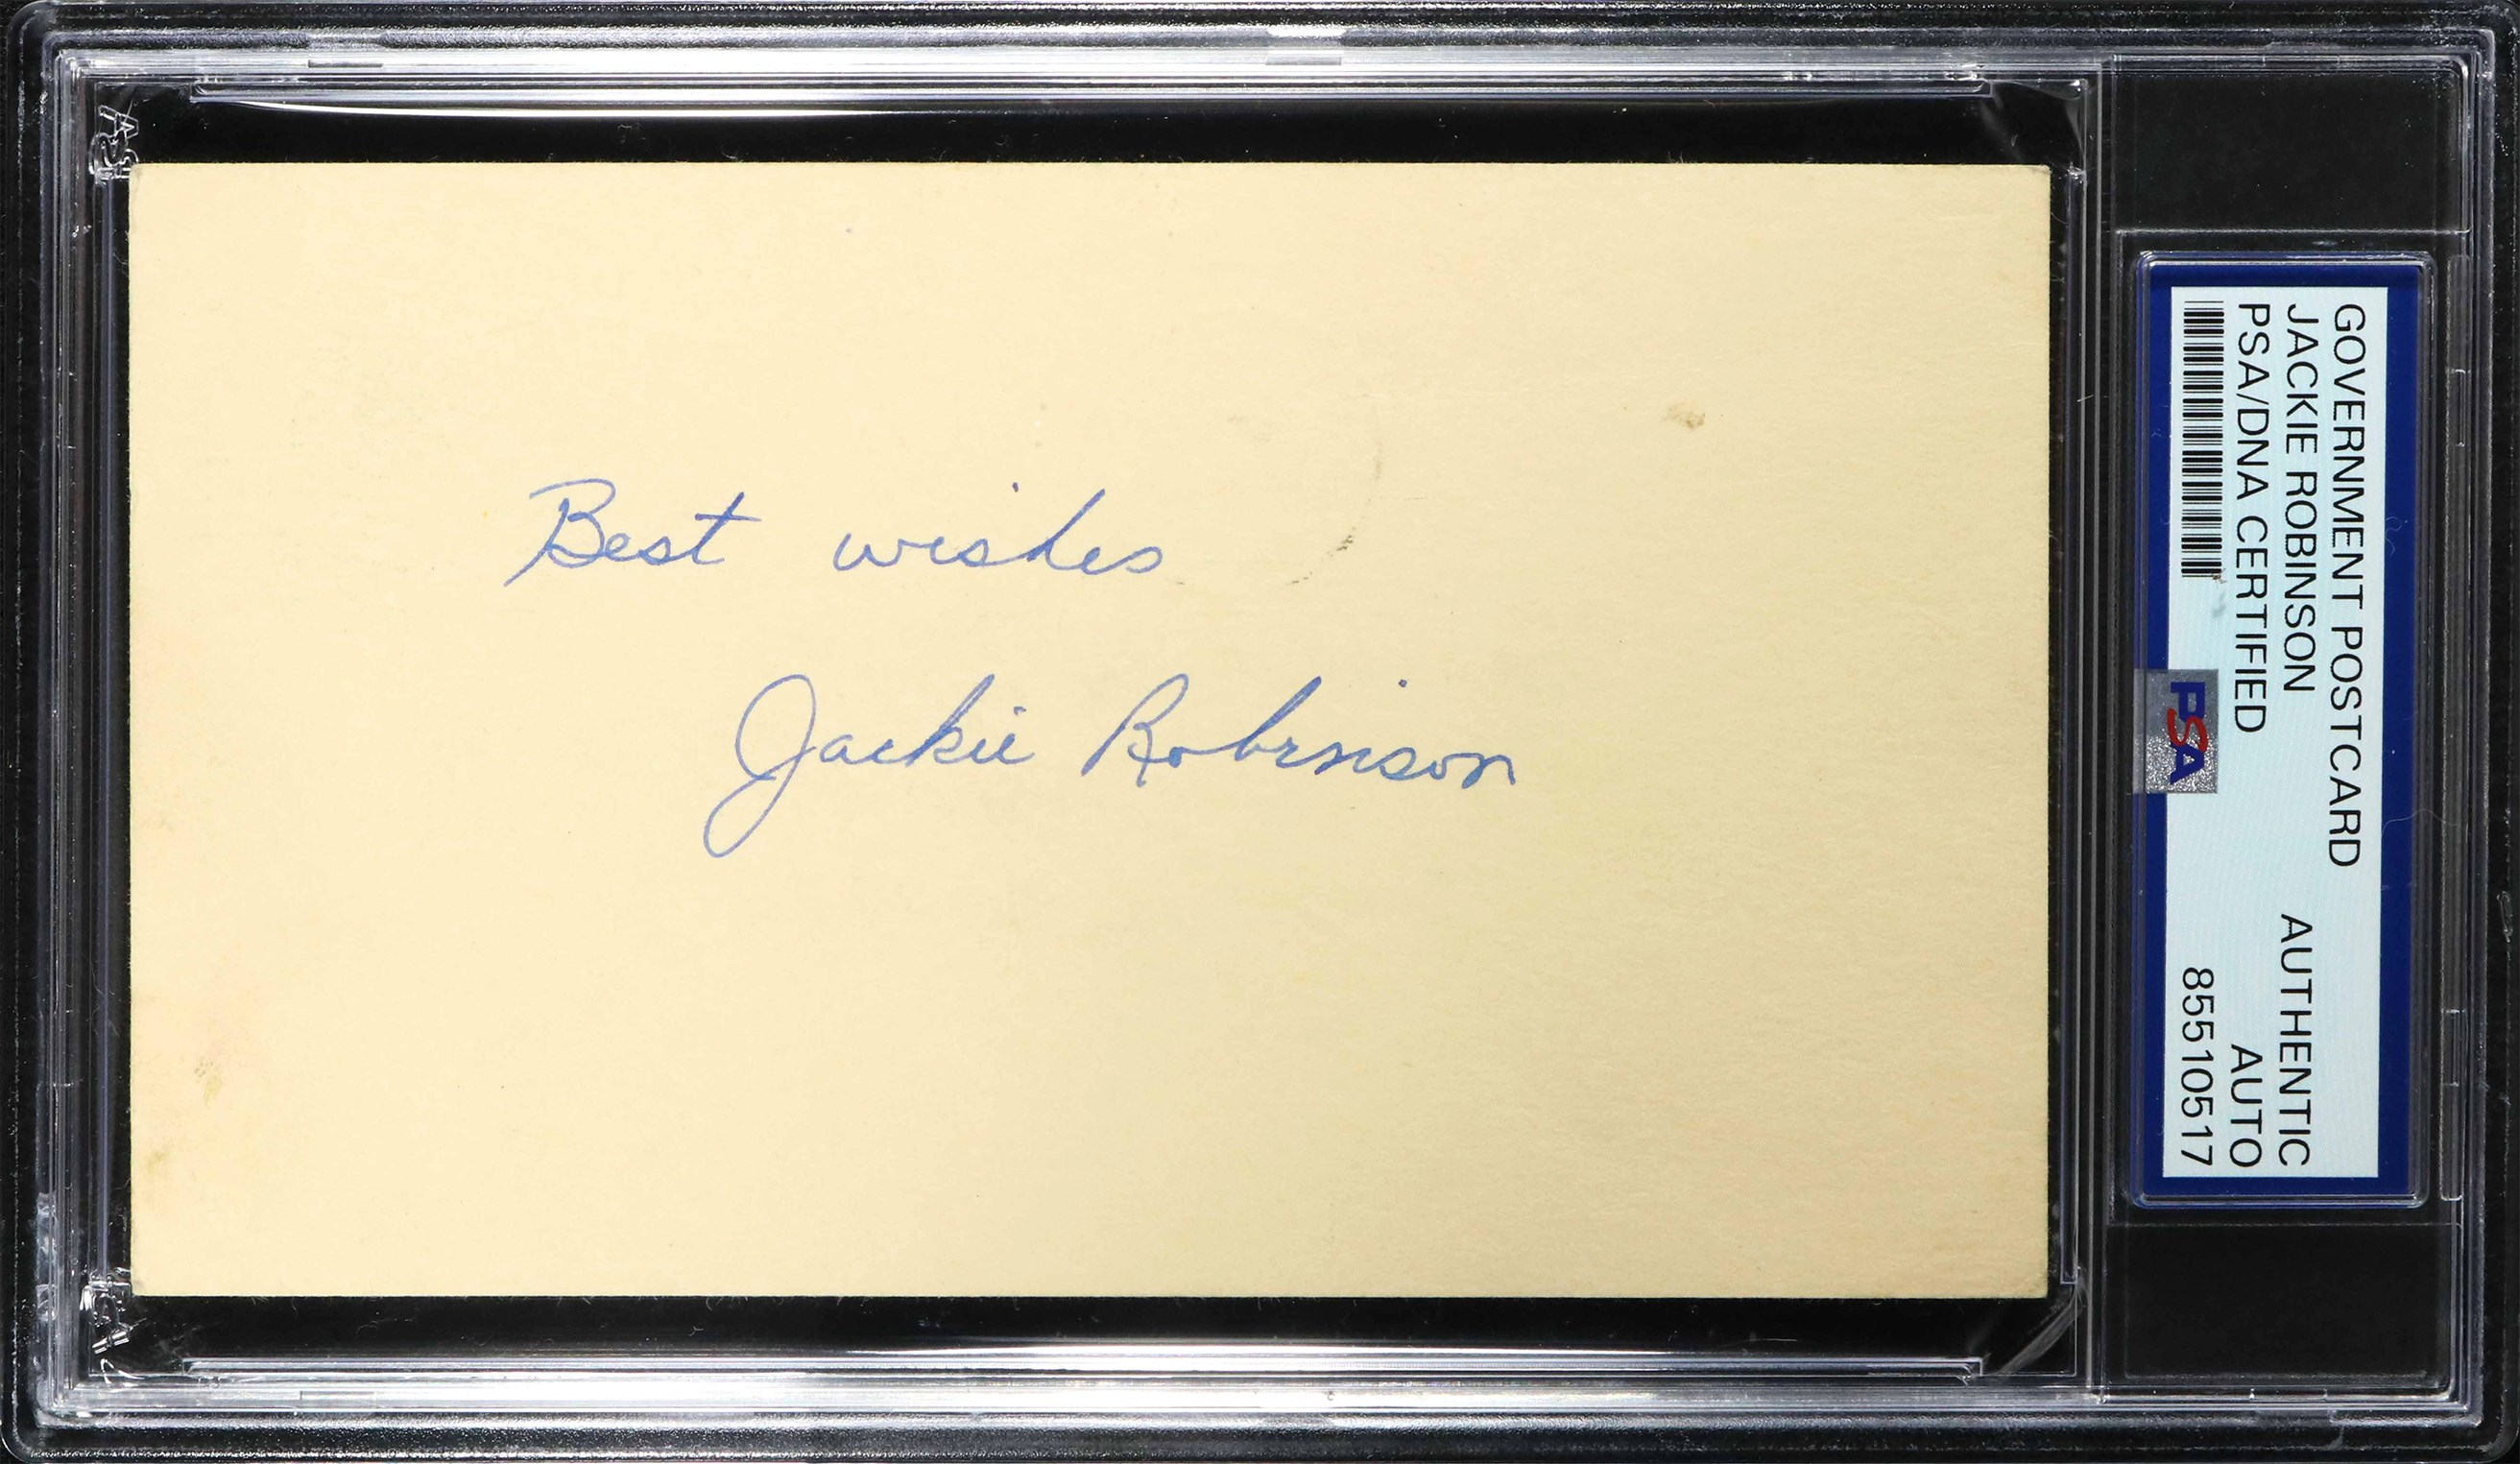 Best wishes
Jackie Robinson
GOVERNMENT POSTCARD
JACKIE ROBINSON
AUTHENTIC
PSA/DNA CERTIFIED
AUTO
85510517
PSA